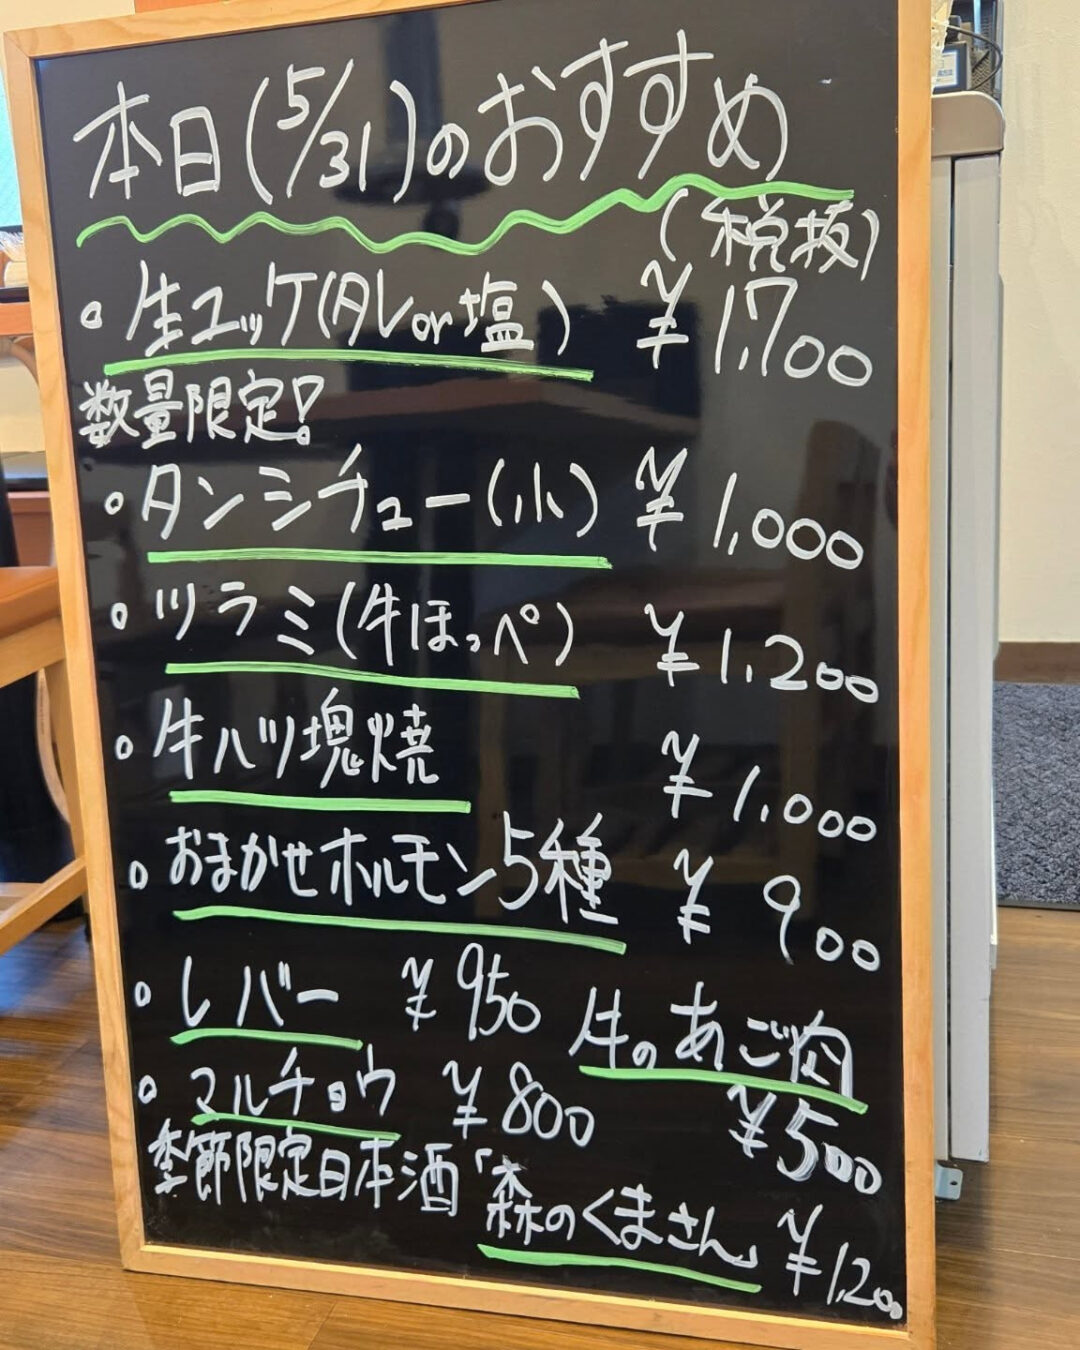 本日(5/31)のおすすめ
(税抜)
・生ユッケ(タレor塩) ¥1,700
数量限定!
・タンシチュー(小) ¥1,000
・ツラミ(牛ほっぺ) ¥1,200
・牛ハツ塊焼 ¥1,000
・おまかせホルモン5種 ¥900
・レバー ¥950
牛のあご肉
¥500
・マルチョウ ¥800
季節限定日本酒「森のくまさん」 ¥1,200